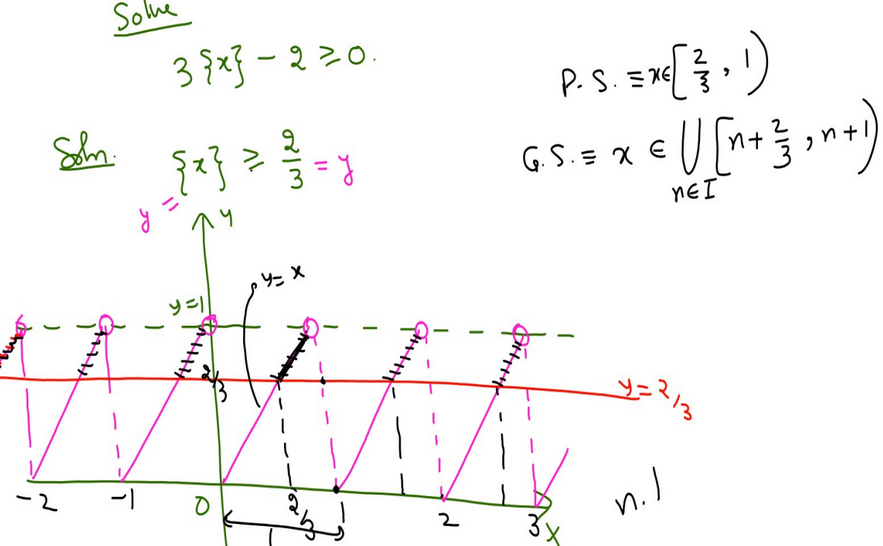 Solve
3{x} - 2 ≥ 0.
Soln. {x} ≥ 2/3 = y
y =
P.S. ≡ x∈[2/3, 1)
G.S. ≡ x ∈ ⋃ [n+2/3, n+1)
n∈I
y
y=x
y=1
2/3
y=2/3
-2 -1 0 2/3 1 2 3 x
1
n.1